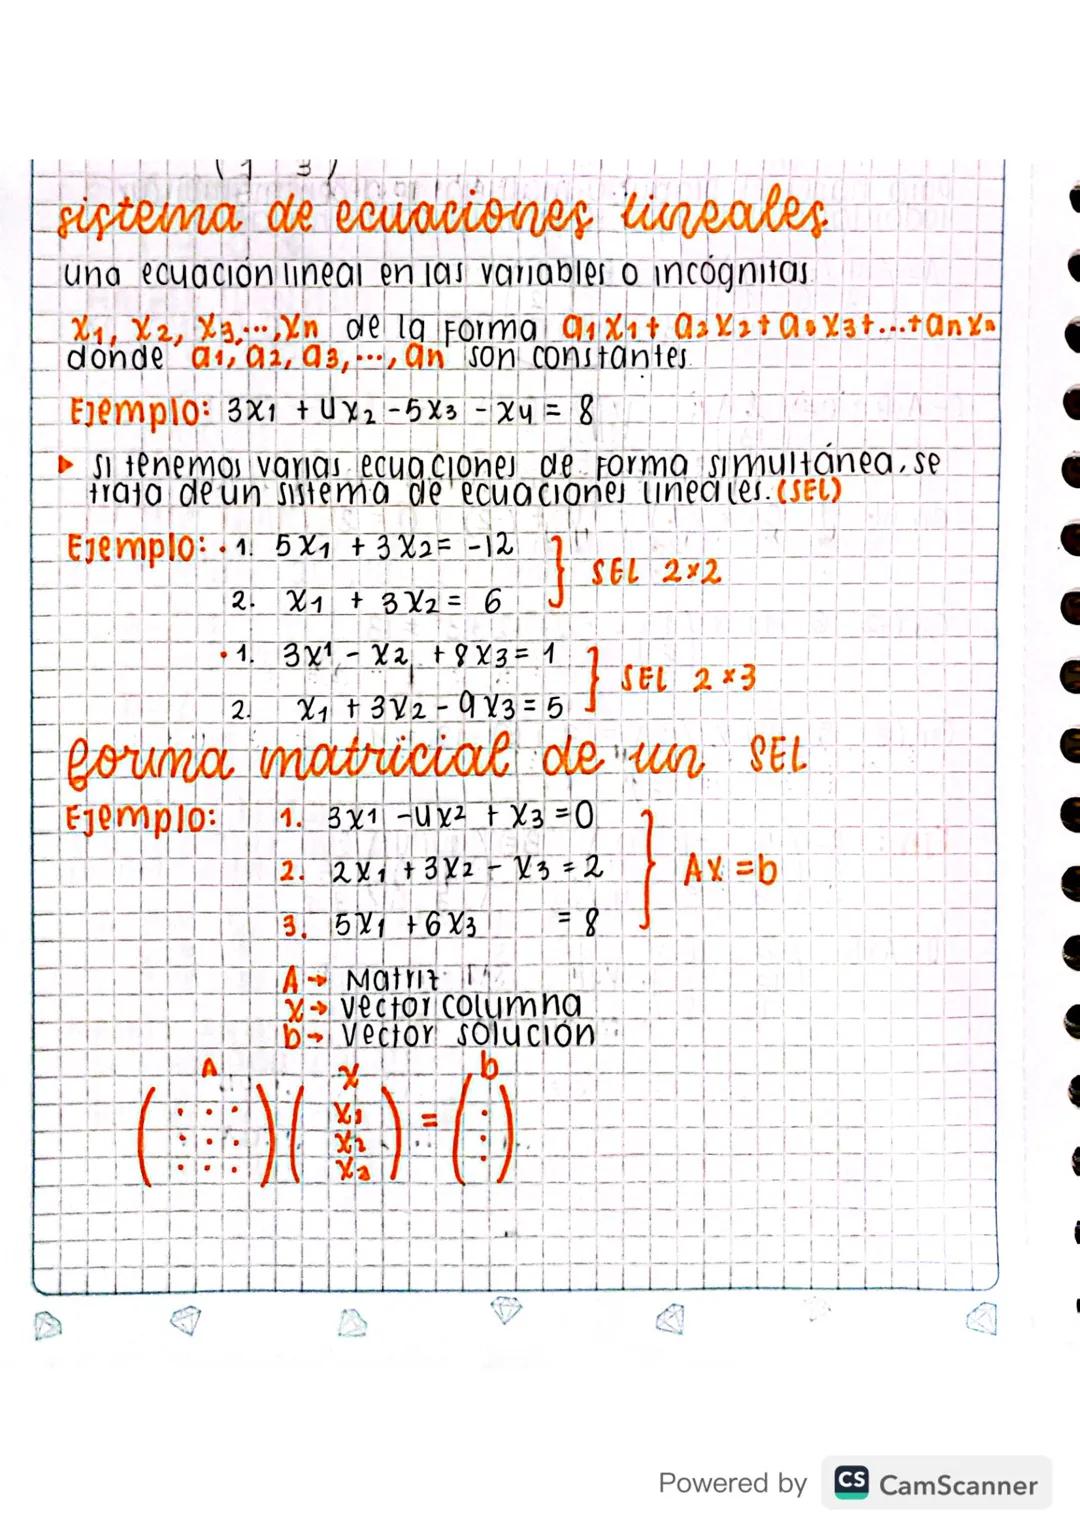 ( 1 3 )
sistema de ecuaciones lineales
una ecuación lineal en las variables o incógnitas
x1, x2, x3,...,xn de la forma a1x1 + a2x2 + a3x3 + ... + anxn
donde a1, a2, a3, ..., an son constantes.
Ejemplo: 3x1 + 4x2 - 5x3 - x4 = 8
▸ si tenemos varias ecuaciones de forma simultánea, se
trata de un sistema de ecuaciones lineales. (SEL)
Ejemplo: • 1. 5x1 + 3x2 = -12
SEL 2x2
2. x1 + 3x2 = 6
• 1. 3x1 - x2 + 8x3 = 1
SEL 2x3
2. x1 + 3x2 - 9x3 = 5
forma matricial de un SEL
Ejemplo: 1. 3x1 - 4x2 + x3 = 0
2. 2x1 + 3x2 - x3 = 2 } Ax = b
3. 5x1 + 6x3 = 8
A → Matriz
x → vector columna
b → vector solución
A x b
( : : : ) ( x1 x2 x3 ) = ( : )
Powered by CS CamScanner